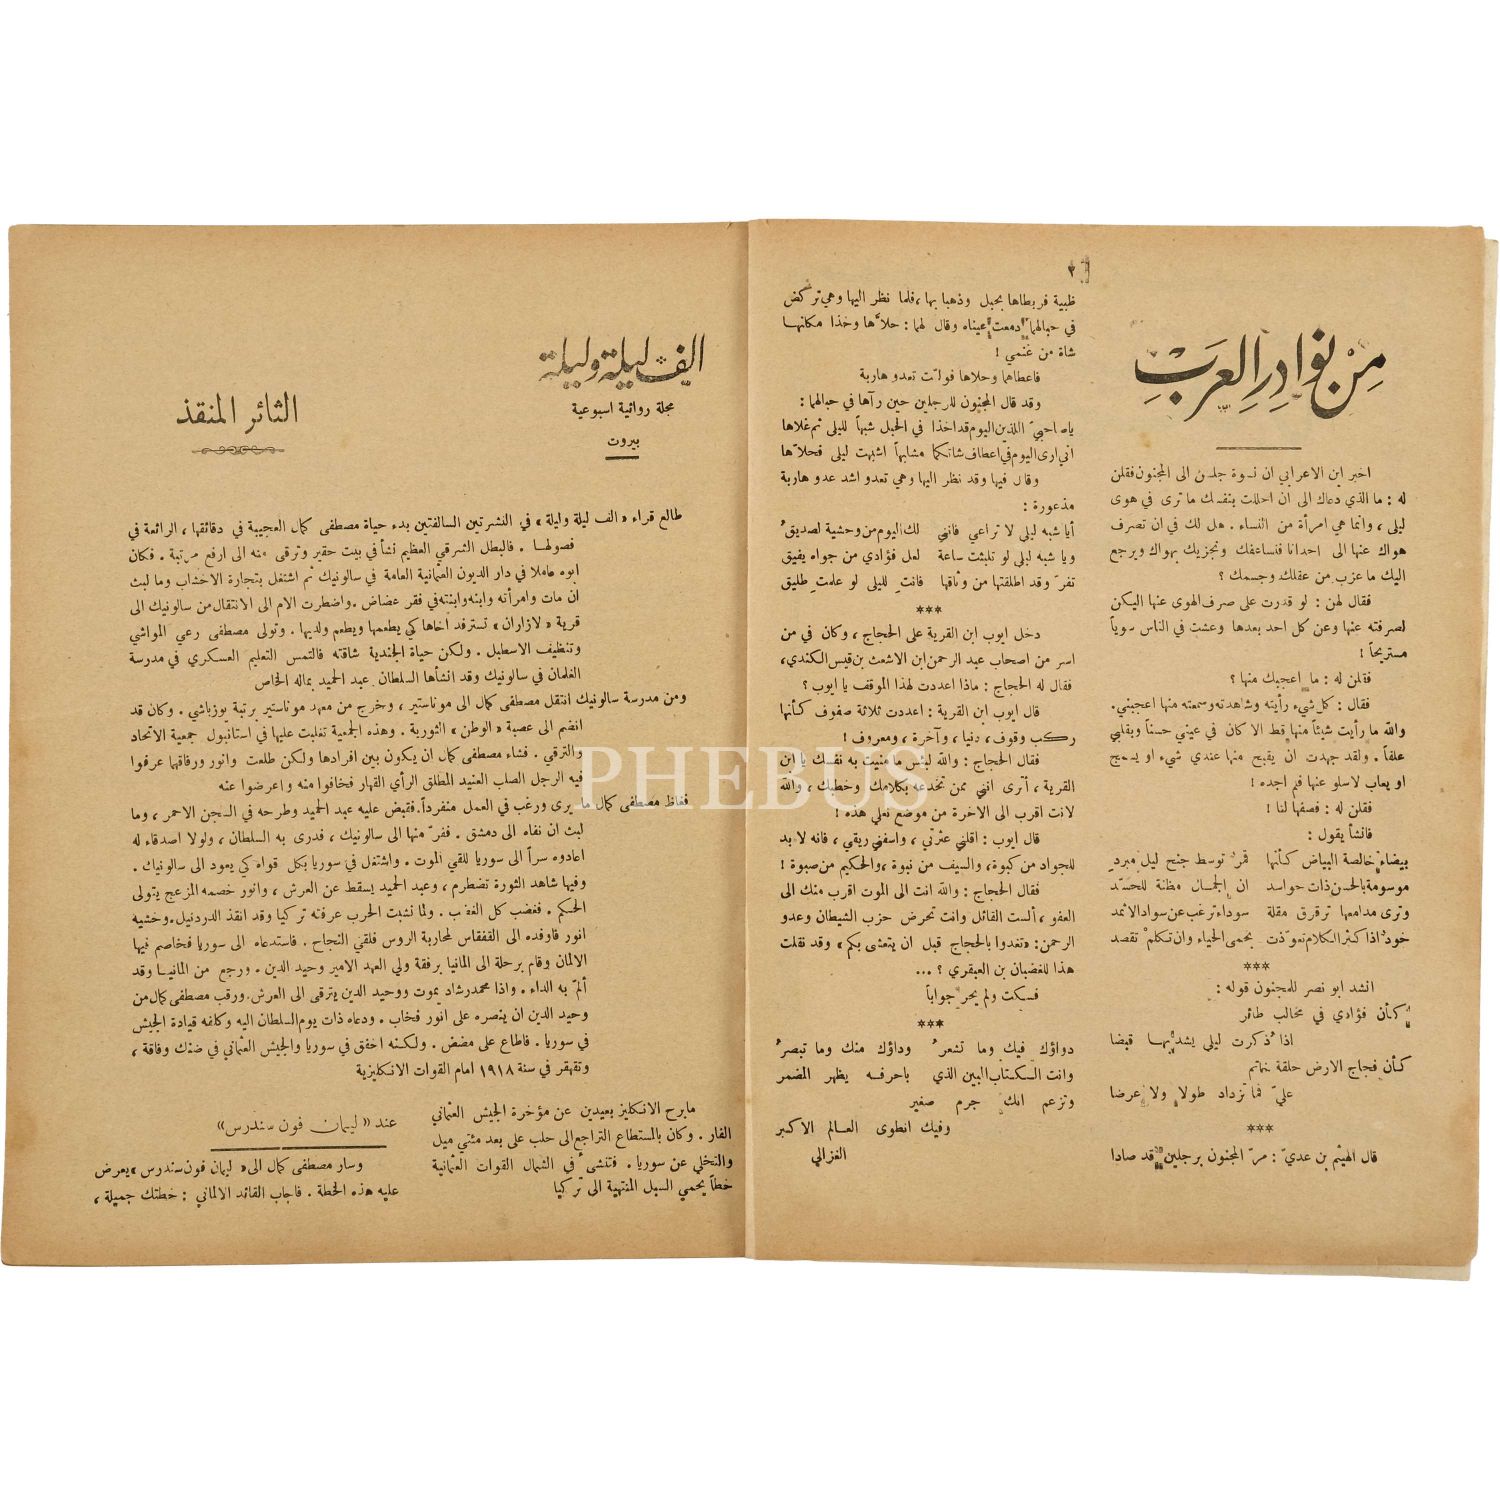 من نوادر العرب
اخبر ابن الاعرابي ان نسوة جلسن الى المجنون فقلن
له : ما الذي دعاك الى ان احللت بنفسك ما ترى في هوى
ليلى ، وانما هي امرأة من النساء . هل لك في ان تصرف
هواك عنها الى احدانا فنساعفك ونجزيك بهواك ويرجع
اليك ما عزب من عقلك وجسمك ؟
فقال لهن : لو قدرت على صرف الهوى عنها اليكن
لصرفته عنها وعن كل احد بعدها وعشت في الناس سوياً
مستريحاً !
فقلن له : ما اعجبك منها ؟
فقال : كل شيء رأيته وشاهدته وسمعته منها اعجبني .
والله ما رأيت شيئاً منها قط الا كان في عيني حسناً وبقلبي
علقاً . ولقد جهدت ان يقبح منها عندي شيء او يسمج
او يعاب لاسلو عنها فلم اجده !
فقلن له : فصفها لنا !
فانشأ يقول :
بيضاء خالصة البياض كأنها قمر توسط جنح ليل مبرد
موسومة بالحسن ذات حواسد ان الجمال مظنة للحسد
وترى مدامعها ترقرق مقلة سوداء ترغب عن سواد الاثمد
خود اذا كثر الكلام تعوذت بحمى الحياء وان تكلم تقصد
***
انشد ابو نصر للمجنون قوله :
كأن فؤادي في مخالب طائر
اذا ذُكرت ليلى يشد بها قبضا
كأن فجاج الارض حلقة خاتم
عليّ فما تزداد طولا ولا عرضا
***
قال الهيثم بن عديّ : مرّ المجنون برجلين قد صادا
٢
ظبية فربطاها بحبل وذهبا بها ، فلما نظر اليها وهي تركض
في حبالهما دمعت عيناه وقال لهما : حلاّها وخذا مكانها
شاة من غنمي !
فاعطاهما وحلاها فولّت تعدو هاربة
وقد قال المجنون للرجلين حين رآها في حبالهما :
يا صاحبيّ اللذين اليوم قد اخذا في الحبل شبهاً لليلى ثم غلاها
اني ارى اليوم في اعطاف شاتكما مشابهاً اشبهت ليلى فحلاّها
وقال فيها وقد نظر اليها وهي تعدو اشد عدو هاربة
مذعورة :
أيا شبه ليلى لا تراعي فانني لك اليوم من وحشية لصديقُ
ويا شبه ليلى لو تلبثت ساعة لعل فؤادي من جواه يفيق
تفرّ وقد اطلقتها من وثاقها فانتِ لليلى لو علمتِ طليق
***
دخل ايوب ابن القرية على الحجاج ، وكان في من
اسر من اصحاب عبد الرحمن ابن الاشعث بن قيس الكندي ،
فقال له الحجاج : ماذا اعددت لهذا الموقف يا ايوب ؟
قال ايوب ابن القرية : اعددت ثلاثة صفوف كأنها
ركب وقوف ، دنيا ، وآخرة ، ومعروف !
فقال الحجاج : والله لبئس ما منيت به نفسك يا ابن
القرية ، أترى انني ممن تخدعه بكلامك وخطبك ، والله
لانت اقرب الى الآخرة من موضع نعلي هذه !
قال ايوب : اقلني عثرتي ، واسغني ريقي ، فانه لا بد
للجواد من كبوة ، والسيف من نبوة ، والحكيم من صبوة !
فقال الحجاج : والله انت الى الموت اقرب منك الى
العفو ، ألست القائل وانت تحرض حزب الشيطان وعدو
الرحمن : «تغدوا بالحجاج قبل ان يتعشى بكم» وقد نقلت
هذا للغضبان بن العبقري ؟ ...
فسكت ولم يحر جواباً
***
دواؤك فيك وما تشعرُ وداؤك منك وما تبصرُ
وانت الكتاب المبين الذي باحرفه يظهر المضمر
وتزعم انك جرم صغير
وفيك انطوى العالم الاكبر
الغزالي
الف ليلة وليلة
مجلة روائية اسبوعية
بيروت
الثائر المنقذ
طالع قراء «الف ليلة وليلة» في النشرتين السالفتين بدء حياة مصطفى كمال العجيبة في دقائقها ، الرائعة في
فصولها . فالبطل الشرقي العظيم نشأ في بيت حقير وترقى منه الى ارفع مرتبة . فكان
ابوه عاملا في دار الديون العثمانية العامة في سالونيك ثم اشتغل بتجارة الاخشاب وما لبث
ان مات وامرأته وابنه وابنته في فقر عضاض . واضطرت الام الى الانتقال من سالونيك الى
قرية «لازاران» تسترفد اخاها كي يطعمها ويطعم ولديها . وتولى مصطفى رعي المواشي
وتنظيف الاسطبل . ولكن حياة الجندية شاقته فالتمس التعليم العسكري في مدرسة
الغلمان في سالونيك وقد انشأها السلطان عبد الحميد بماله الخاص
ومن مدرسة سالونيك انتقل مصطفى كمال الى موناستير ، وخرج من معهد موناستير برتبة يوزباشي . وكان قد
انضم الى عصبة «الوطن» الثورية . وهذه الجمعية تغلبت عليها في استانبول جمعية الاتحاد
والترقي . فشاء مصطفى كمال ان يكون بين افرادها ولكن طلعت وانور ورفاقهما عرفوا
فيه الرجل الصلب العنيد المطلق الرأي القهار فخافوا منه واعرضوا عنه
فغاظ مصطفى كمال ما يرى ورغب في العمل منفرداً . فقبض عليه عبد الحميد وطرحه في السجن الاحمر ، وما
لبث ان نفاه الى دمشق . ففرّ منها الى سالونيك ، فدرى به السلطان ، ولولا اصدقاء له
اعادوه سراً الى سوريا للقي الموت . واشتغل في سوريا بكل قواه كي يعود الى سالونيك .
وفيها شاهد الثورة تضطرم ، وعبد الحميد يسقط عن العرش ، وانور خصمه المزعج يتولى
الحكم . فغضب كل الغضب . ولما نشبت الحرب عرفته تركيا وقد انقذ الدردنيل . وخشيه
انور فاوفده الى القفقاس لمحاربة الروس فلقي النجاح . فاستدعاه الى سوريا فخاصم فيها
الالمان وقام برحلة الى المانيا برفقة ولي العهد الامير وحيد الدين . ورجع من المانيا وقد
ألمّ به الداء . واذا محمد رشاد يموت ووحيد الدين يترقى الى العرش . ورقب مصطفى كمال من
وحيد الدين ان ينصره على انور فخاب . ودعاه ذات يوم السلطان اليه وكلفه قيادة الجيش
في سوريا . فاطاع على مضض . ولكنه اخفق في سوريا والجيش العثماني في ضنك وفاقة ،
وتقهقر في سنة ١٩١٨ امام القوات الانكليزية
ما برح الانكليز بعيدين عن مؤخرة الجيش العثماني
الفار . وكان بالمستطاع التراجع الى حلب على بعد مئتي ميل
والتخلي عن سوريا . فتنشىء في الشمال القوات العثمانية
خطاً يحمي السبل المنتهية الى تركيا
عند «ليمان فون سندرس»
وسار مصطفى كمال الى «ليمان فون سندرس» يعرض
عليه هذه الخطة . فاجاب القائد الالماني : خطتك جميلة ،
PHEBUS